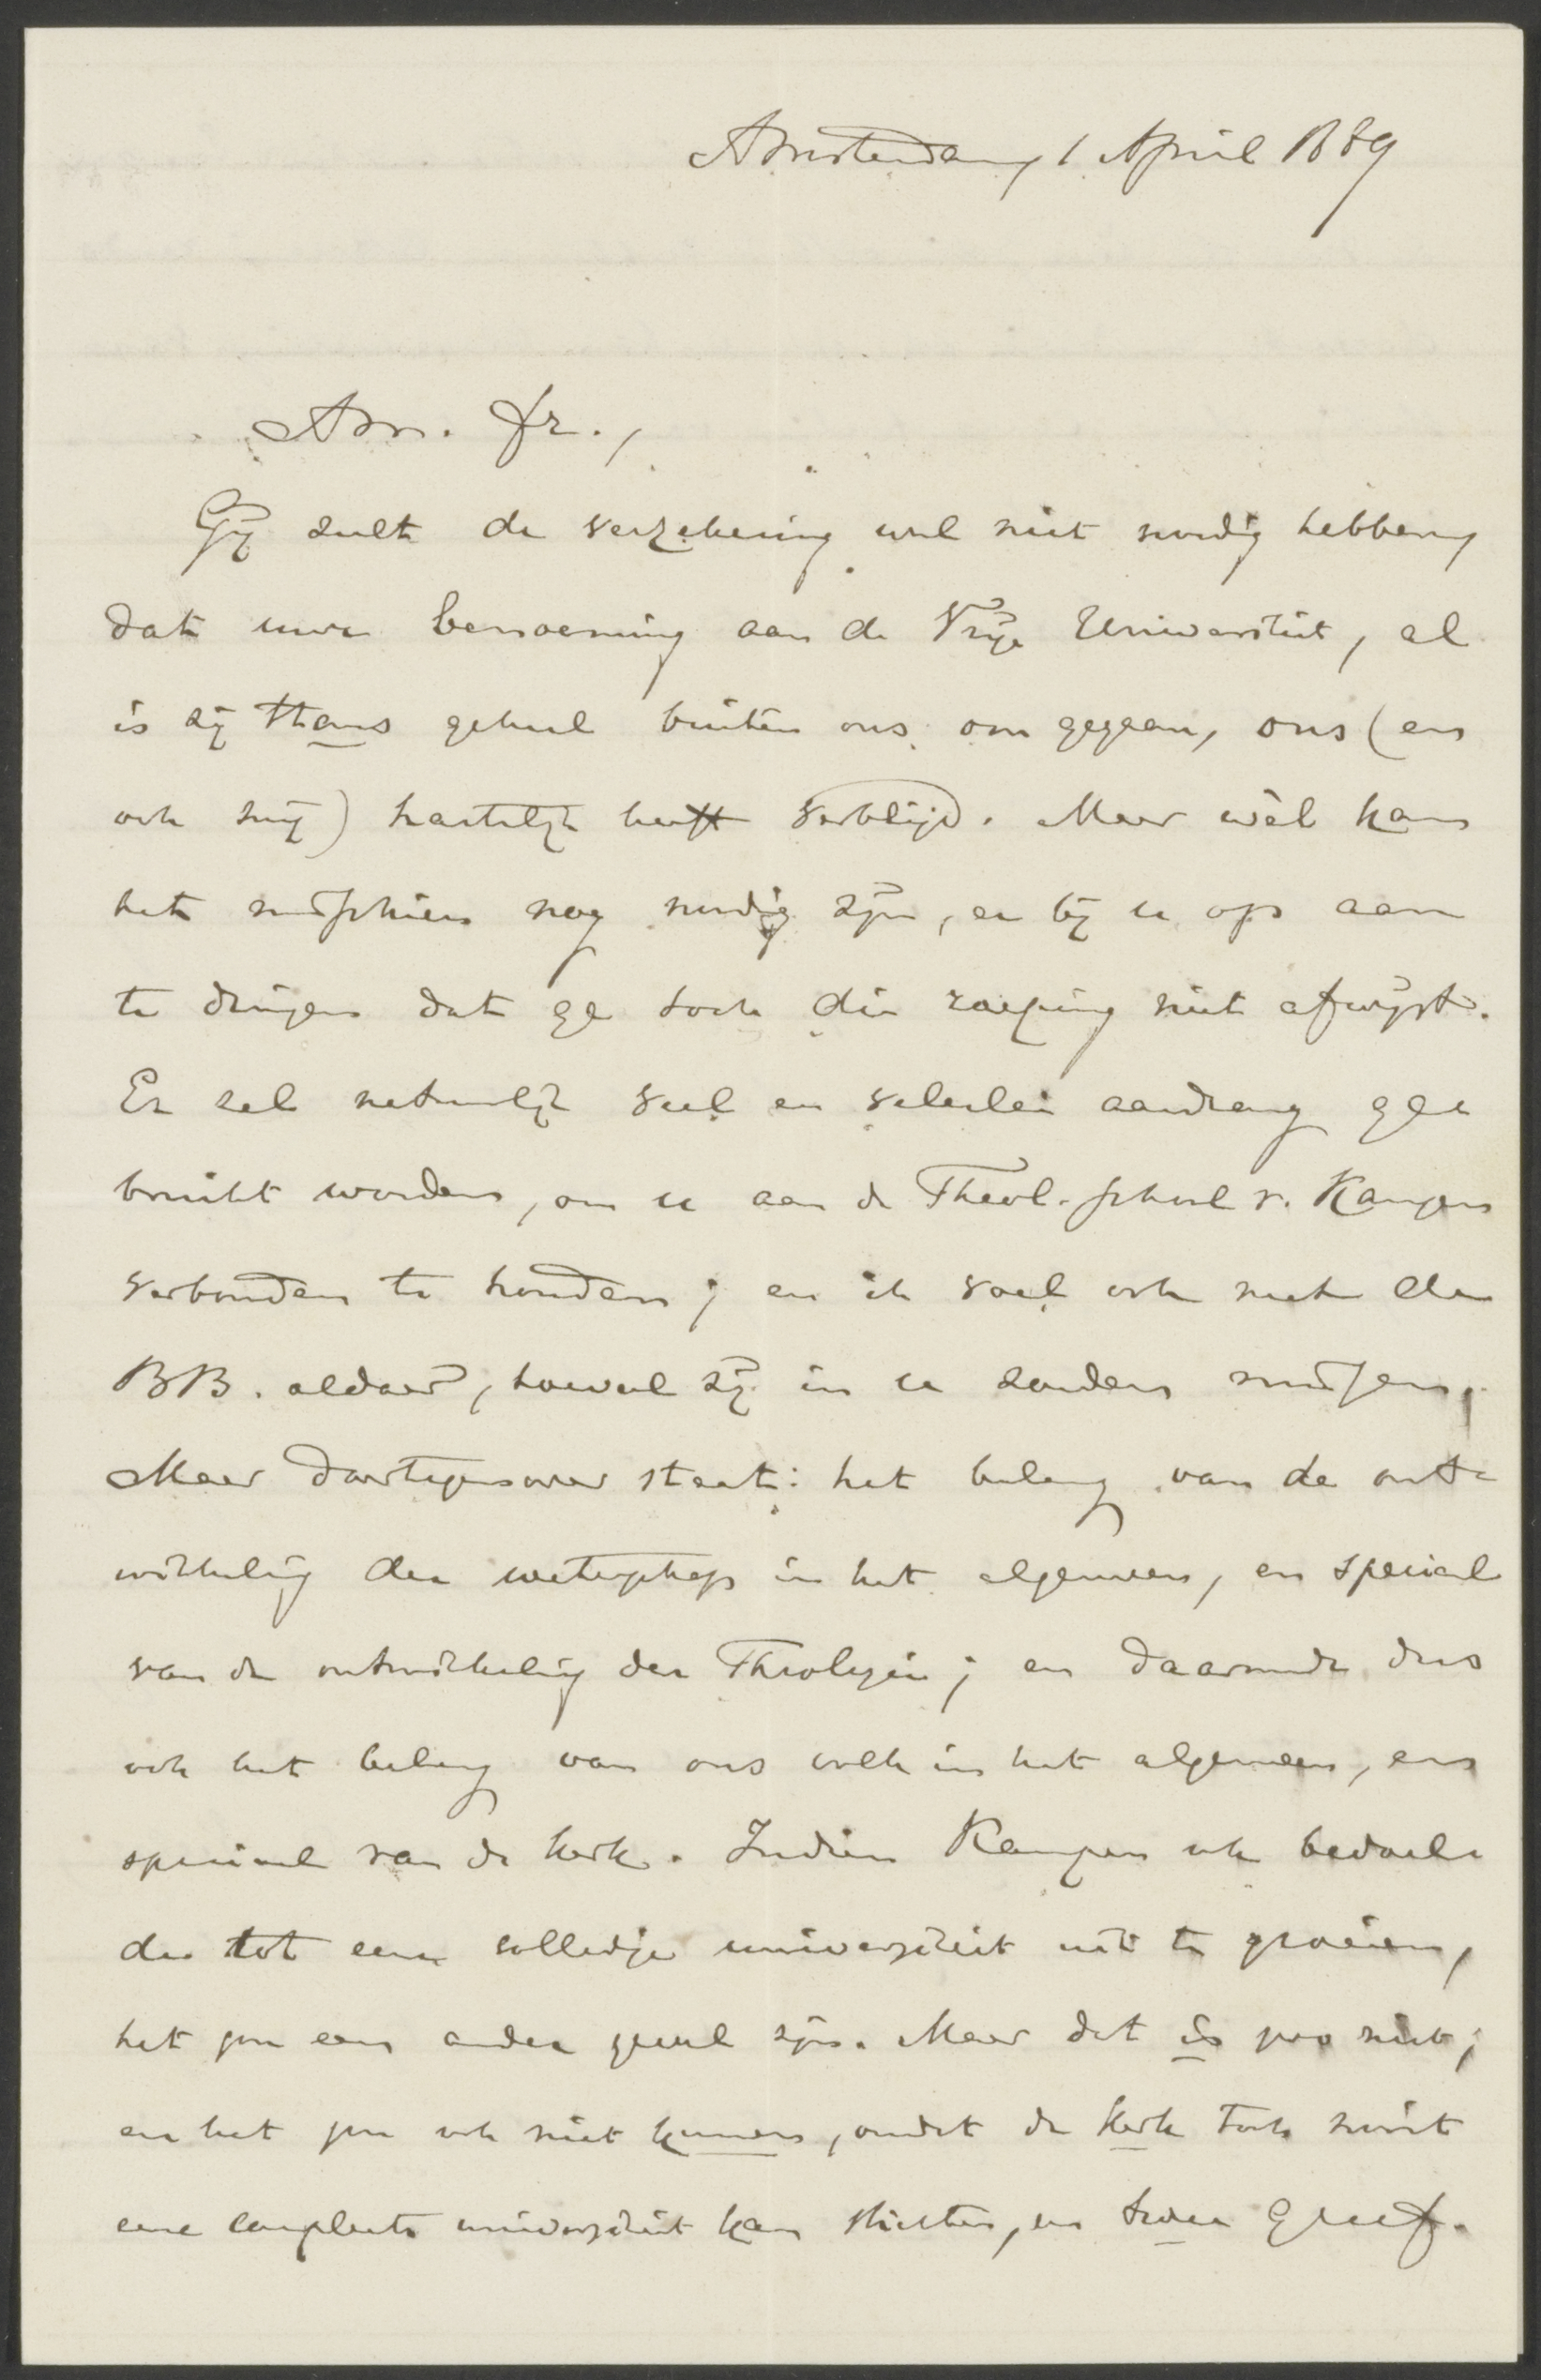 Amsterdam, 1 April 1889
Am. Fr.,
Gij zult de verzekering wel niet noodig hebben,
dat uwe benoeming aan de Vrije Universiteit, al
is zij thans geheel buiten ons om gegaan, ons (en
ook mij) hartelijk heeft verblijd. Maar wèl kan
het misschien nog noodig zijn, er bij u op aan
te dringen dat ge toch die roeping niet afwijst.
Er zal natuurlijk veel en velerlei aandrang ge-
bruikt worden, om u aan de Theol. School v. Kampen
verbonden te houden; en ik voel ook met de
BB. aldaar, hoeveel zij in u zouden missen.
Maar daartegenover staat: het belang van de ont-
wikkeling der wetenschap in het algemeen, en speciaal
van de ontwikkeling der Theologie; en daarmede dus
ook het belang van ons volk in het algemeen, en
speciaal van de kerk. Indien Kampen ook bedoel-
de tot eene volledige universiteit uit te groeien,
het zou een ander geval zijn. Maar dat is zoo niet;
en het zou ook niet kunnen, omdat de kerk toch nooit
eene complete universiteit kan stichten, en twee Geref.